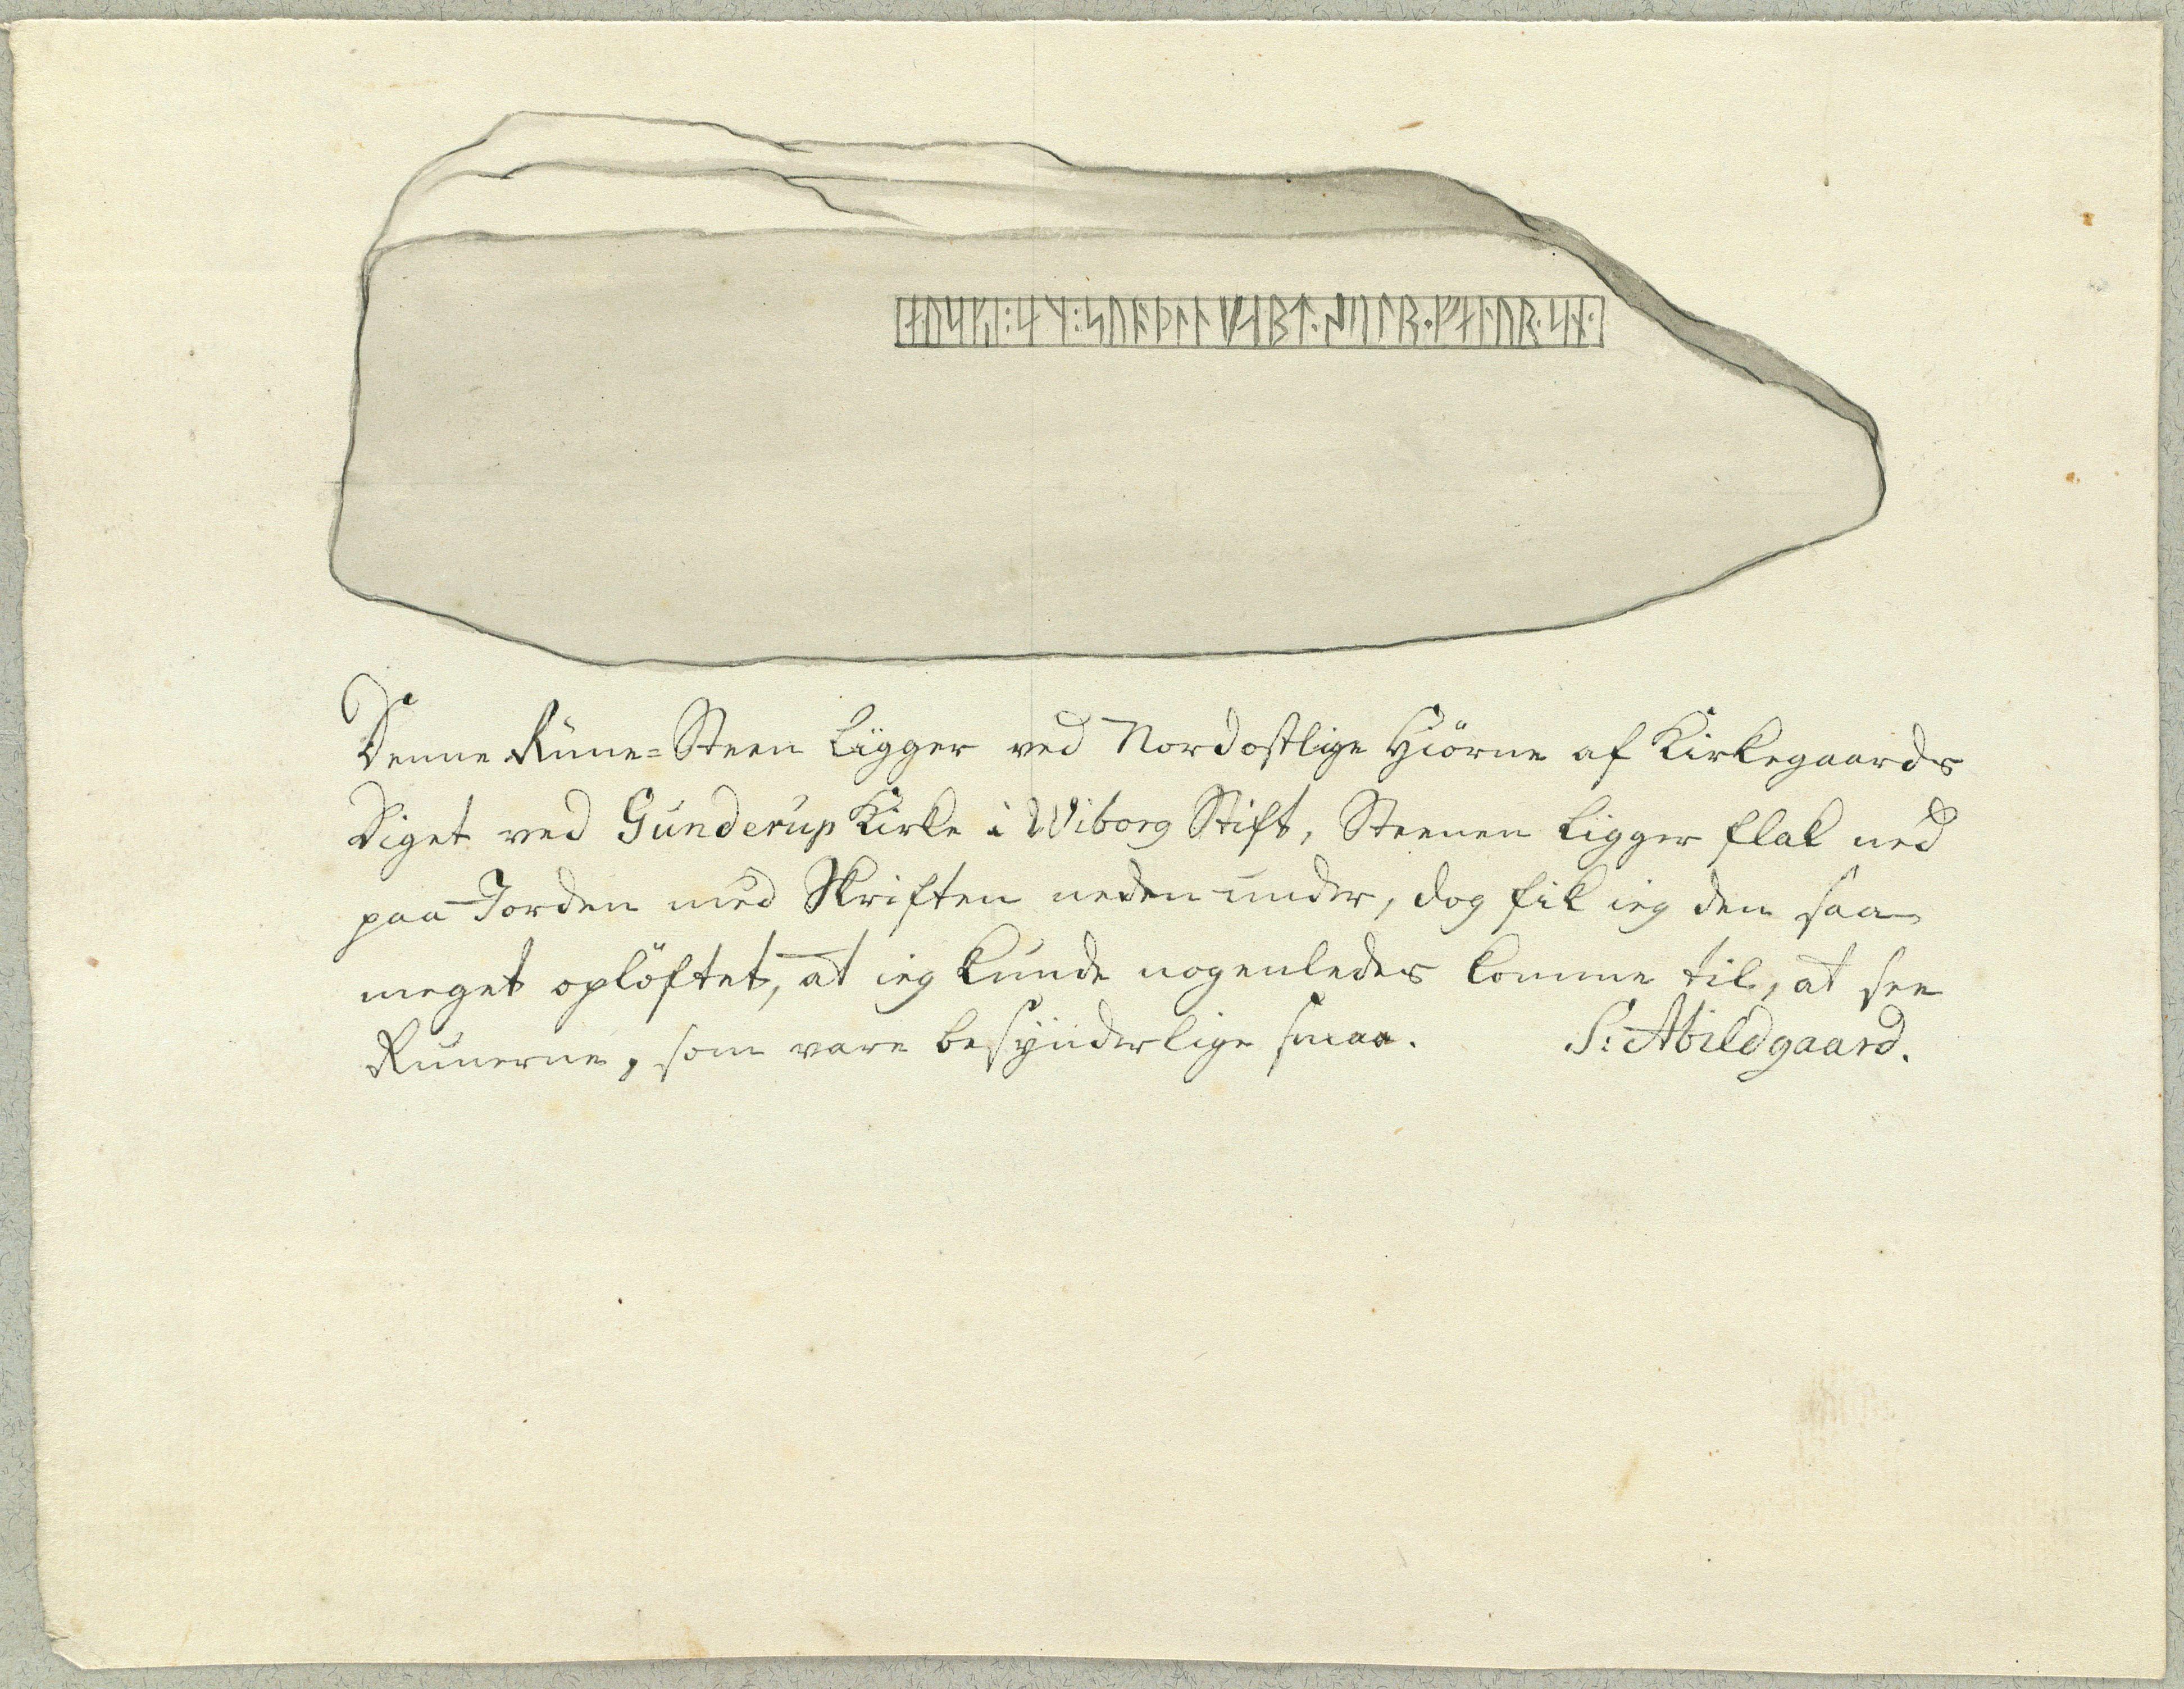 Denne Rune=Steen ligger ved Nordostlige Hiörne af Kirkegaards
Diget ved Gunderup Kirke i Wiborg Stift, Steenen ligger flak ned
paa Jorden med Skriften neden under, dog fik ieg den saa
meget oplöftet, at ieg kunde nogenledes komme til, at see
Runerne, som vare besÿnderlige smaa. S: Abildgaard.